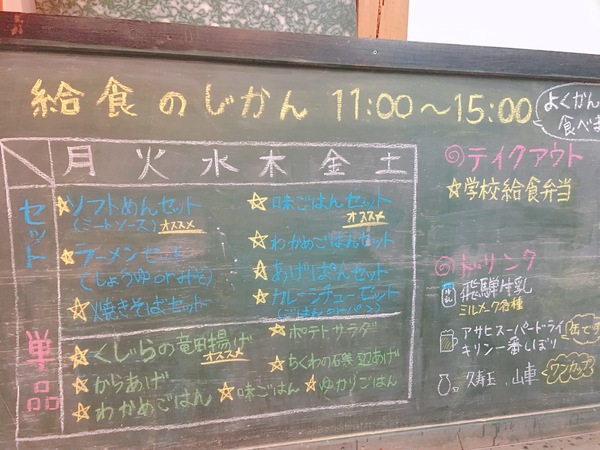 給食のじかん 11:00～15:00
よくかん
食べま
月 火 水 木 金 土
セット
ソフトめんセット
(ミートソース) オススメ
ラーメンセット
(しょうゆorみそ)
焼きそばセット
味ごはんセット
オススメ
わかめごはんセット
あげぱんセット
カレーシチューセット
単品
くじらの竜田揚げ
オススメ
からあげ
わかめごはん
ポテトサラダ
ちくわの石垣辺あげ
味ごはん
ゆかりごはん
テイクアウト
学校給食弁当
ドリンク
飛騨牛乳
ミルメーク各種
アサヒスーパードライ
キリン一番しぼり
缶です
久寿玉、山車
ワンカップ